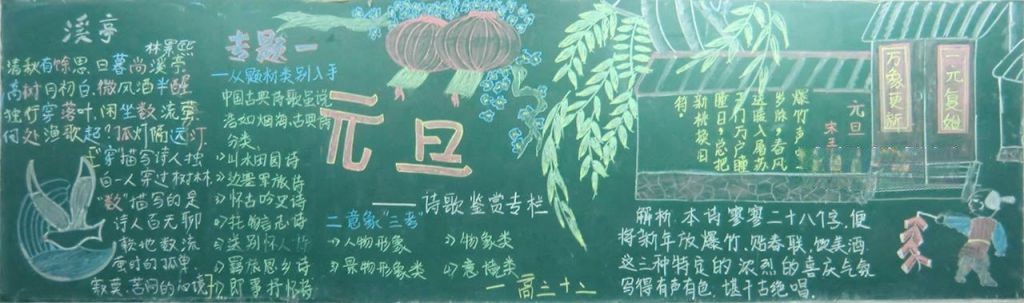 溪亭
林景熙
清秋有馀思,日暮尚溪亭
高树月初白,微风酒半醒
独行穿落叶,闲坐数流萤
何处渔歌起?孤灯隔远汀
"穿"描写诗人独
自一人穿过树林
"数"描写的是
诗人百无聊
赖地数流
萤时的孤单、
寂寞、苦闷的心境
专题一
一从题材类别入手
中国古典诗歌
浩如烟海,古典诗
分类、
1)山水田园诗
2)边塞军旅诗
3)怀古咏史诗
4)托物言志诗
5)送别怀人诗
6)羁旅思乡诗
7)即事抒怀诗
元旦
——诗歌鉴赏专栏
二意象"三类"
1)人物形象
2)物象类
3)景物形象类
4)意境类
一高二十二
元旦
宋 王
爆竹声声一
岁除,春风
送暖入屠苏
千门万户曈
曈日,总把
新桃换旧
符。
万象更新
一元复始
解析:本诗寥寥二十八个字,便
将新年放爆竹、贴春联、饮美酒
这三种特定的浓烈的喜庆气氛
写得有声有色,堪千古绝唱。